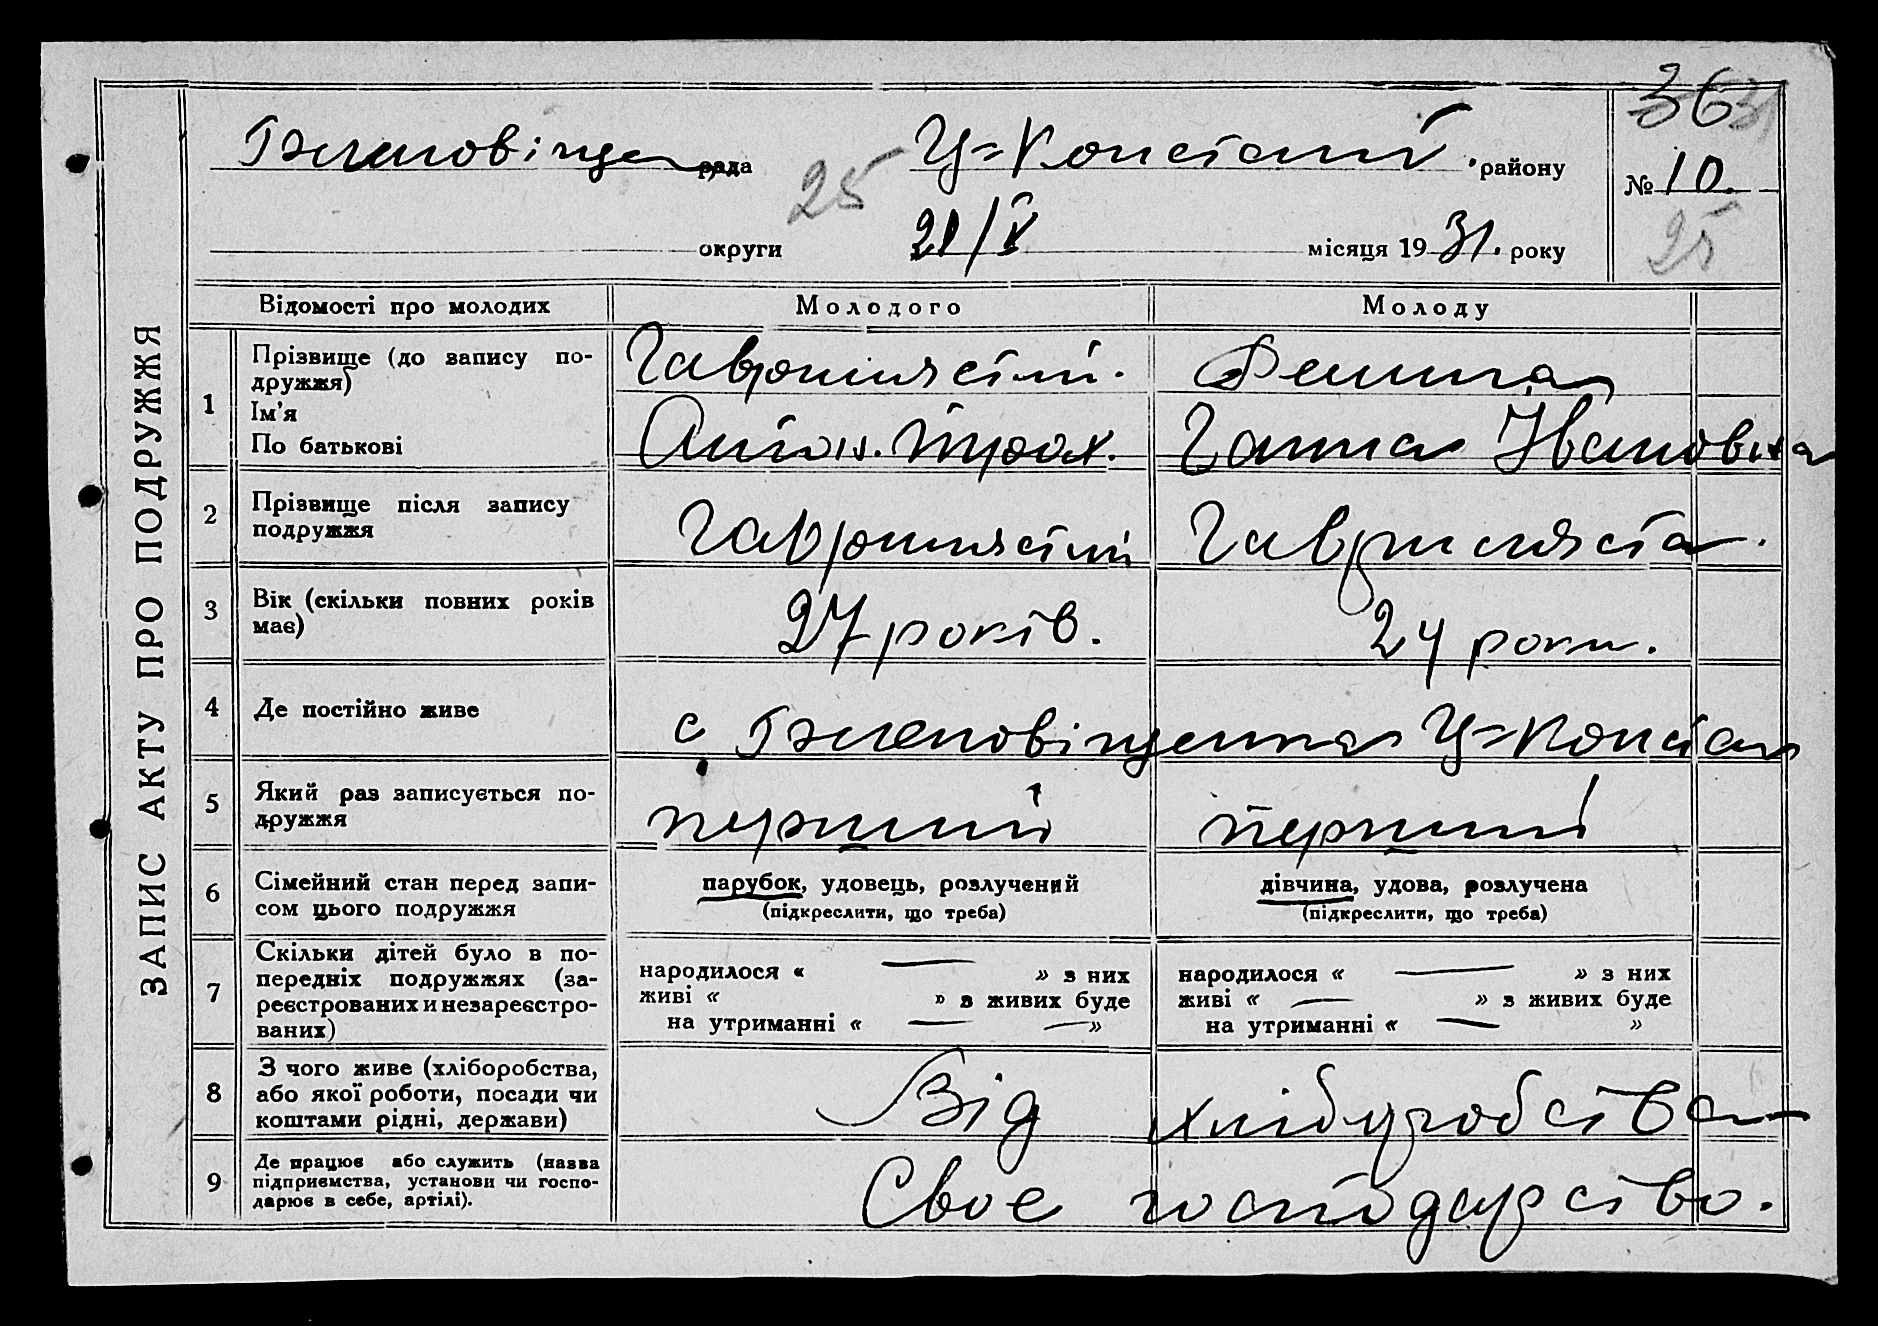 ЗАПИС АКТУ ПРО ПОДРУЖЖЯ
36
рада 25 району
№ 10.
округи 21/V місяця 1931. року
25
Відомості про молодих Молодого Молоду
1 Прізвище (до запису по-
дружжя)
Ім'я
По батькові
Ганна Івановна
2 Прізвище після запису
подружжя
3 Вік (скільки повних років
має)
27 років. 24 роки.
4 Де постійно живе
с
5 Який раз записується по-
дружжя
перший перший
6 Сімейний стан перед запи-
сом цього подружжя
парубок, удовець, розлучений
(підкреслити, що треба)
дівчина, удова, розлучена
(підкреслити, що треба)
7 Скільки дітей було в по-
передніх подружжях (за-
реєстрованих и незареєстро-
ваних)
народилося « — » з них
живі « » з живих буде
на утриманні « — — »
народилося « — » з них
живі « — » з живих буде
на утриманні « — »
8 З чого живе (хліборобства,
або якої роботи, посади чи
коштами рідні, держави)
Від хліборобства
9 Де працює або служить (назва
підприємства, установи чи госпо-
дарює в себе, артілі).
Своє господарство.